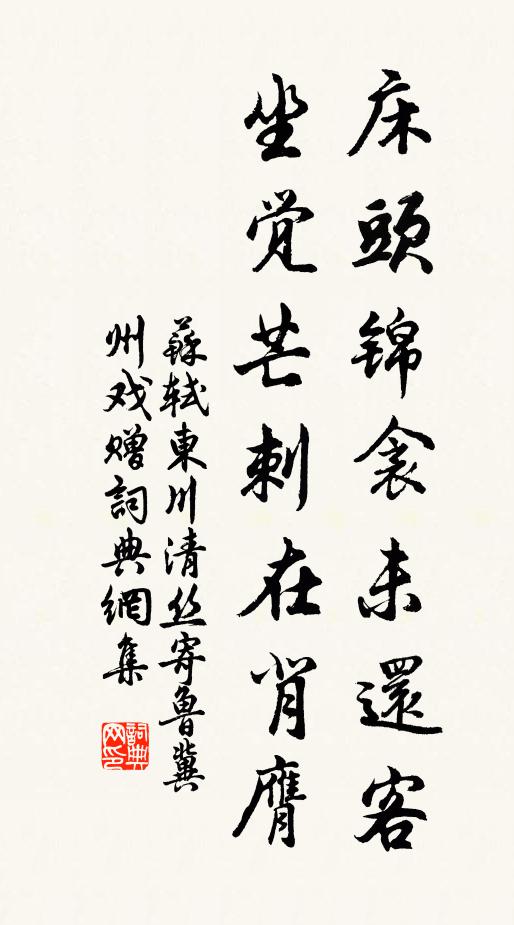 床頭锦衾未還客
坐觉芒刺在背膺
蘇轼東川清丝寄魯冀
州戏赠詞典網集
詞典
网印